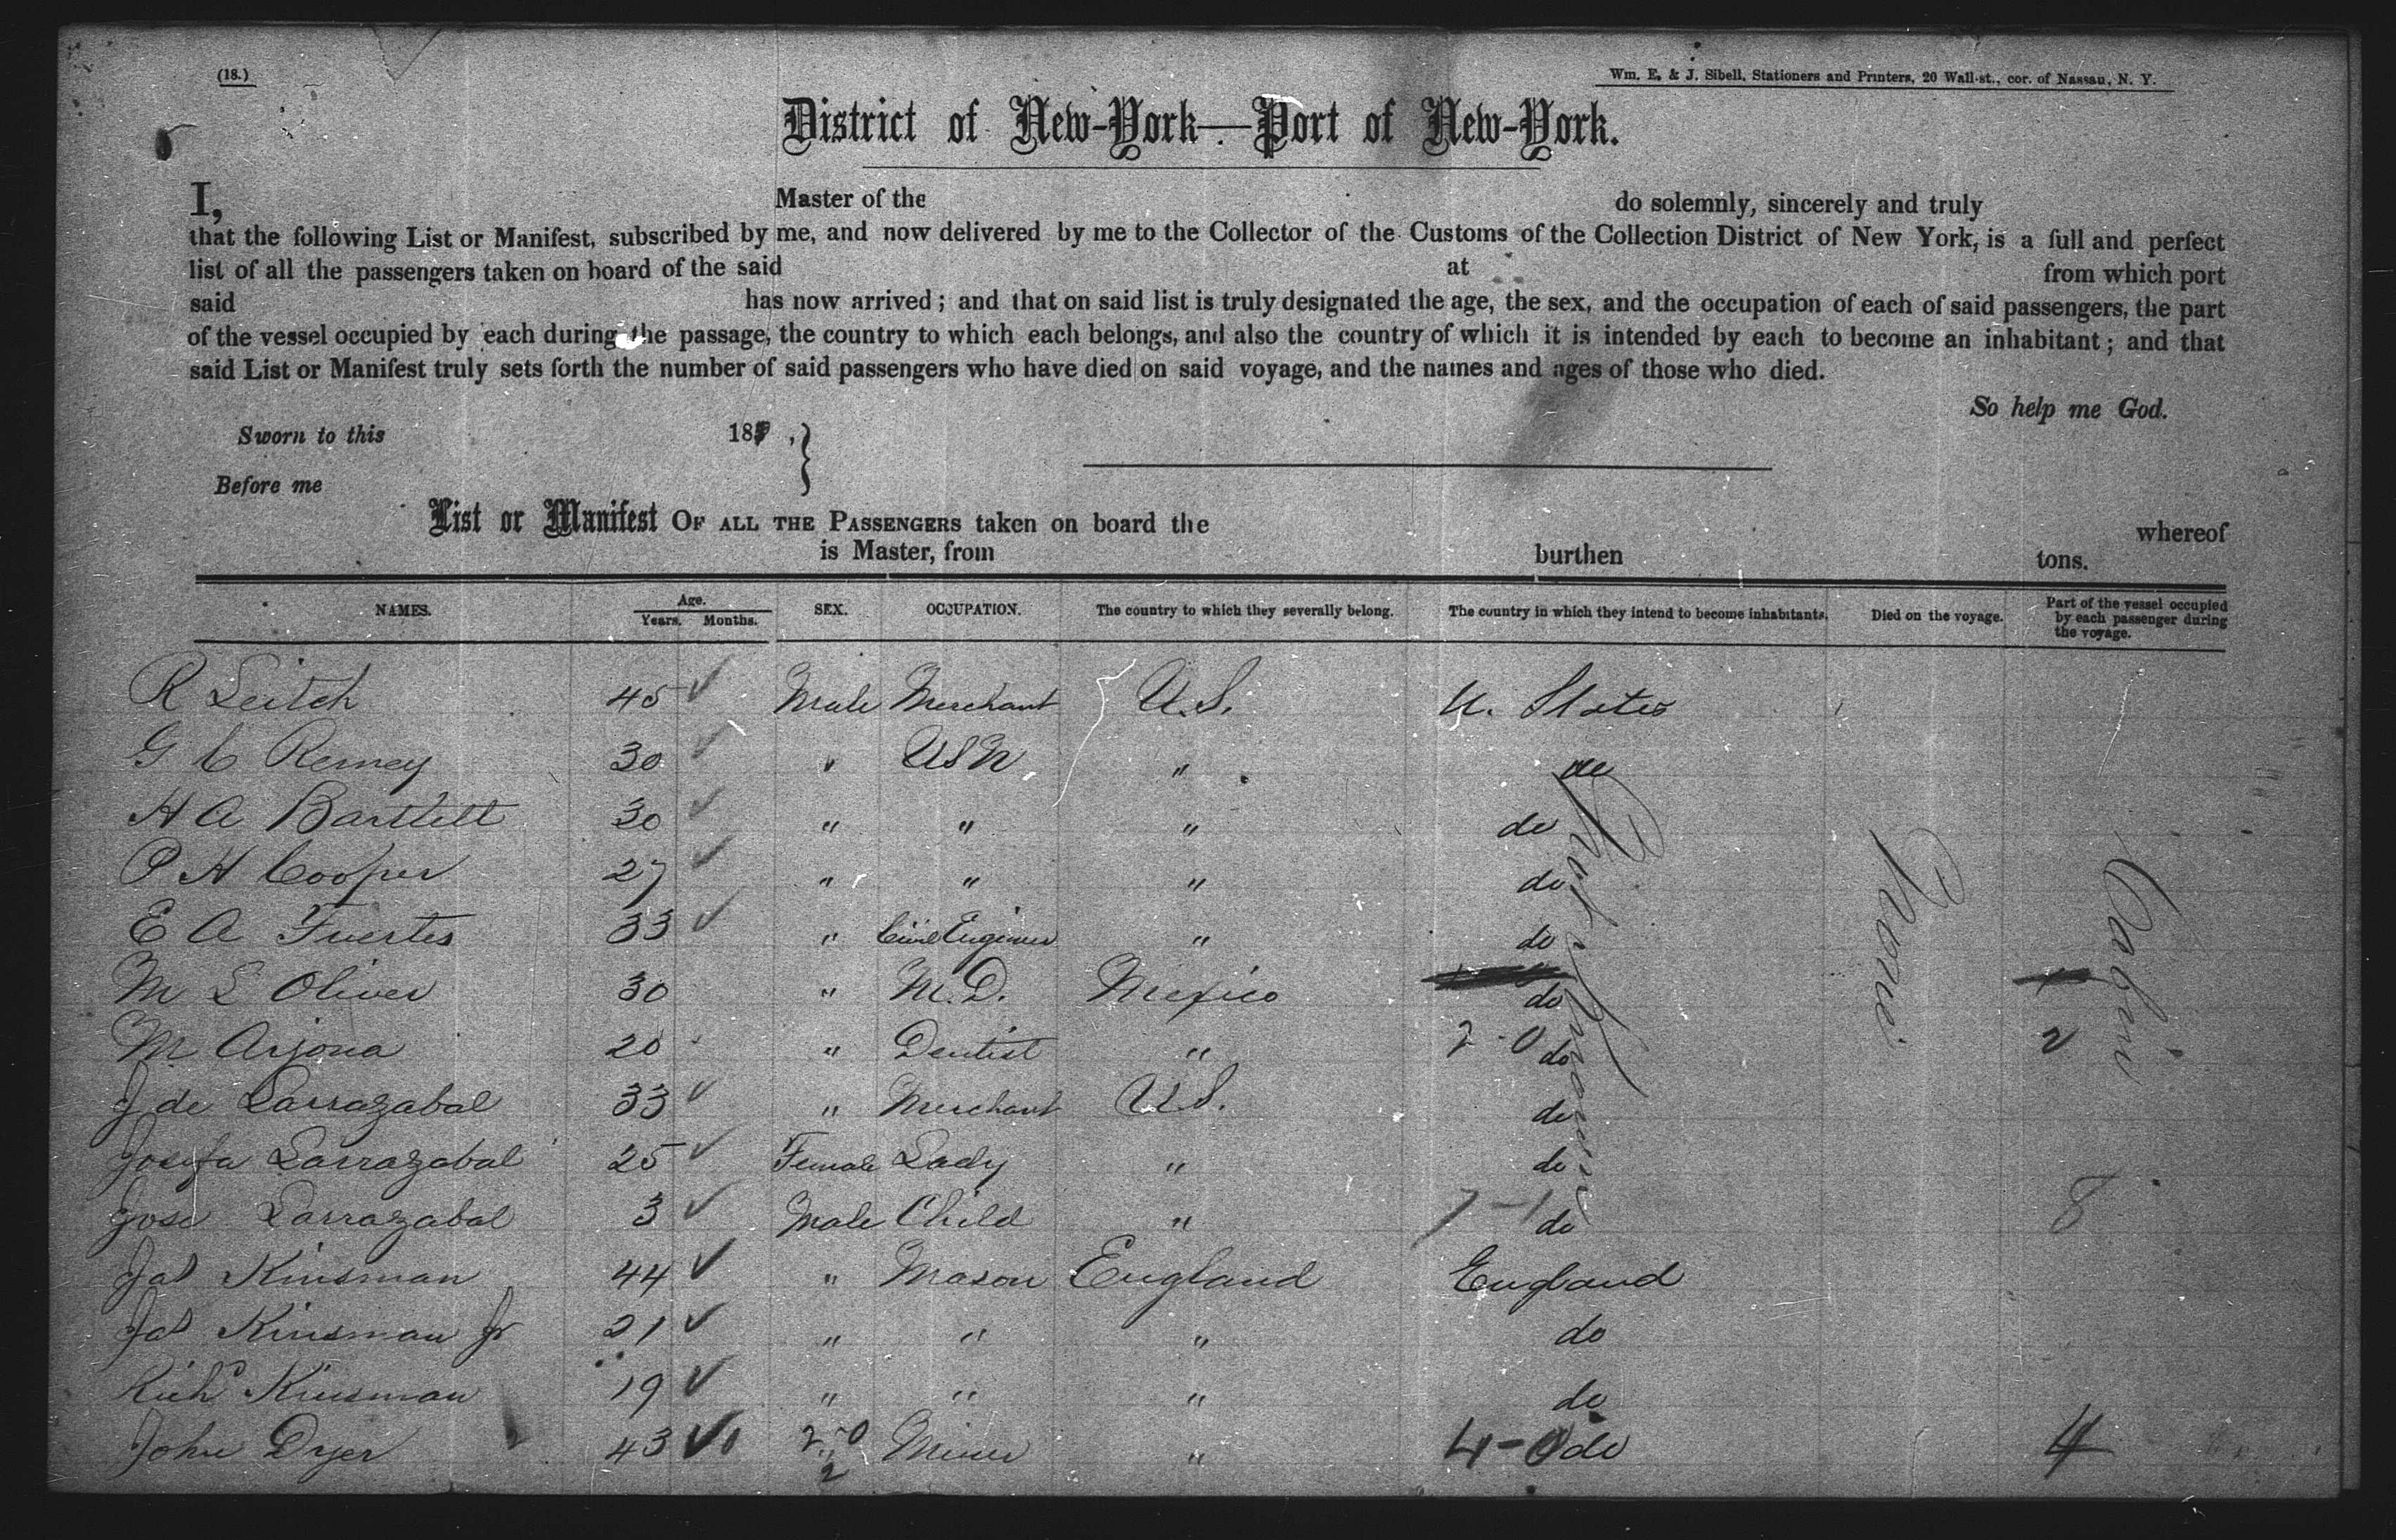 (18.)
Wm. E. & J. Sibell, Stationers and Printers, 20 Wall-st., cor. of Nassau, N. Y.
District of New-York—Port of New-York.
I, Master of the do solemnly, sincerely and truly
that the following List or Manifest, subscribed by me, and now delivered by me to the Collector of the Customs of the Collection District of New York, is a full and perfect
list of all the passengers taken on board of the said at from which port
said has now arrived; and that on said list is truly designated the age, the sex, and the occupation of each of said passengers, the part
of the vessel occupied by each during the passage, the country to which each belongs, and also the country of which it is intended by each to become an inhabitant; and that
said List or Manifest truly sets forth the number of said passengers who have died on said voyage, and the names and ages of those who died.
So help me God.
Sworn to this 18 ,}
Before me
List or Manifest OF ALL THE PASSENGERS taken on board the whereof
is Master, from burthen tons.
NAMES. Age. Years. Months. SEX. OCCUPATION. The country to which they severally belong. The country in which they intend to become inhabitants. Died on the voyage. Part of the vessel occupied by each passenger during the voyage.
R Leitch 45 ✓ Male Merchant U.S. U. States
G C Remey 30 ✓ " USN " do
H A Bartlett 30 ✓ " " " do
P H Cooper 27 ✓ " " " do
E A Fuertes 33 ✓ " Civil Engineer " do
M L Oliver 30 " M.D. Mexico do
M Arjona 20 " Dentist " 2-0 do 2
J de Larrazabal 33 ✓ " Merchant U.S. do
Josefa Larrazabal 25 ✓ Female Lady " do
Jose Larrazabal 3 ✓ Male Child " 7-1 do 8
Jas Kinsman 44 ✓ " Mason England England
Jas Kinsman Jr 21 ✓ " " " do
Richd Kinsman 19 ✓ " " " do
John Dyer 43 ✓ 2-0 " 2 Miner " 4-0 do 4
None
Cabin